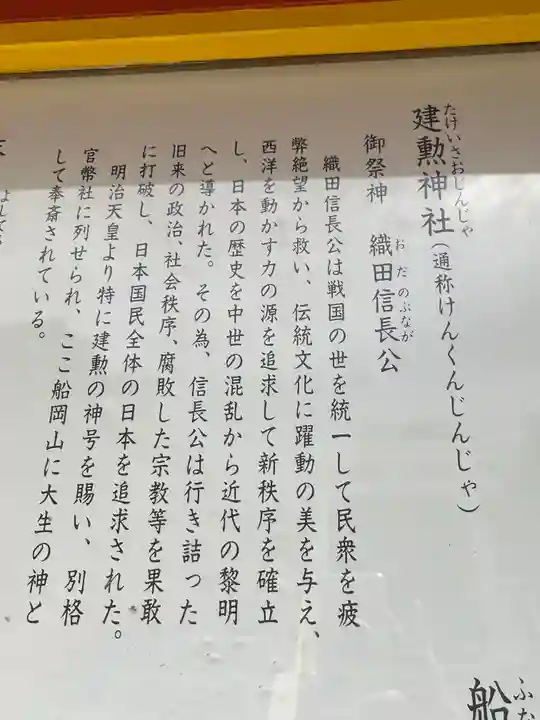 建勲神社（通称けんくんじんじゃ）
たけいさおじんじゃ
御祭神　織田信長公
おだのぶなが
織田信長公は戦国の世を統一して民衆を疲
弊絶望から救い、伝統文化に躍動の美を与え、
西洋を動かす力の源を追求して新秩序を確立
し、日本の歴史を中世の混乱から近代の黎明
へと導かれた。その為、信長公は行き詰った
旧来の政治、社会秩序、腐敗した宗教等を果敢
に打破し、日本国民全体の日本を追求された。
明治天皇より特に建勲の神号を賜い、別格
官幣社に列せられ、ここ船岡山に大生の神と
して奉斎されている。
船
ふな